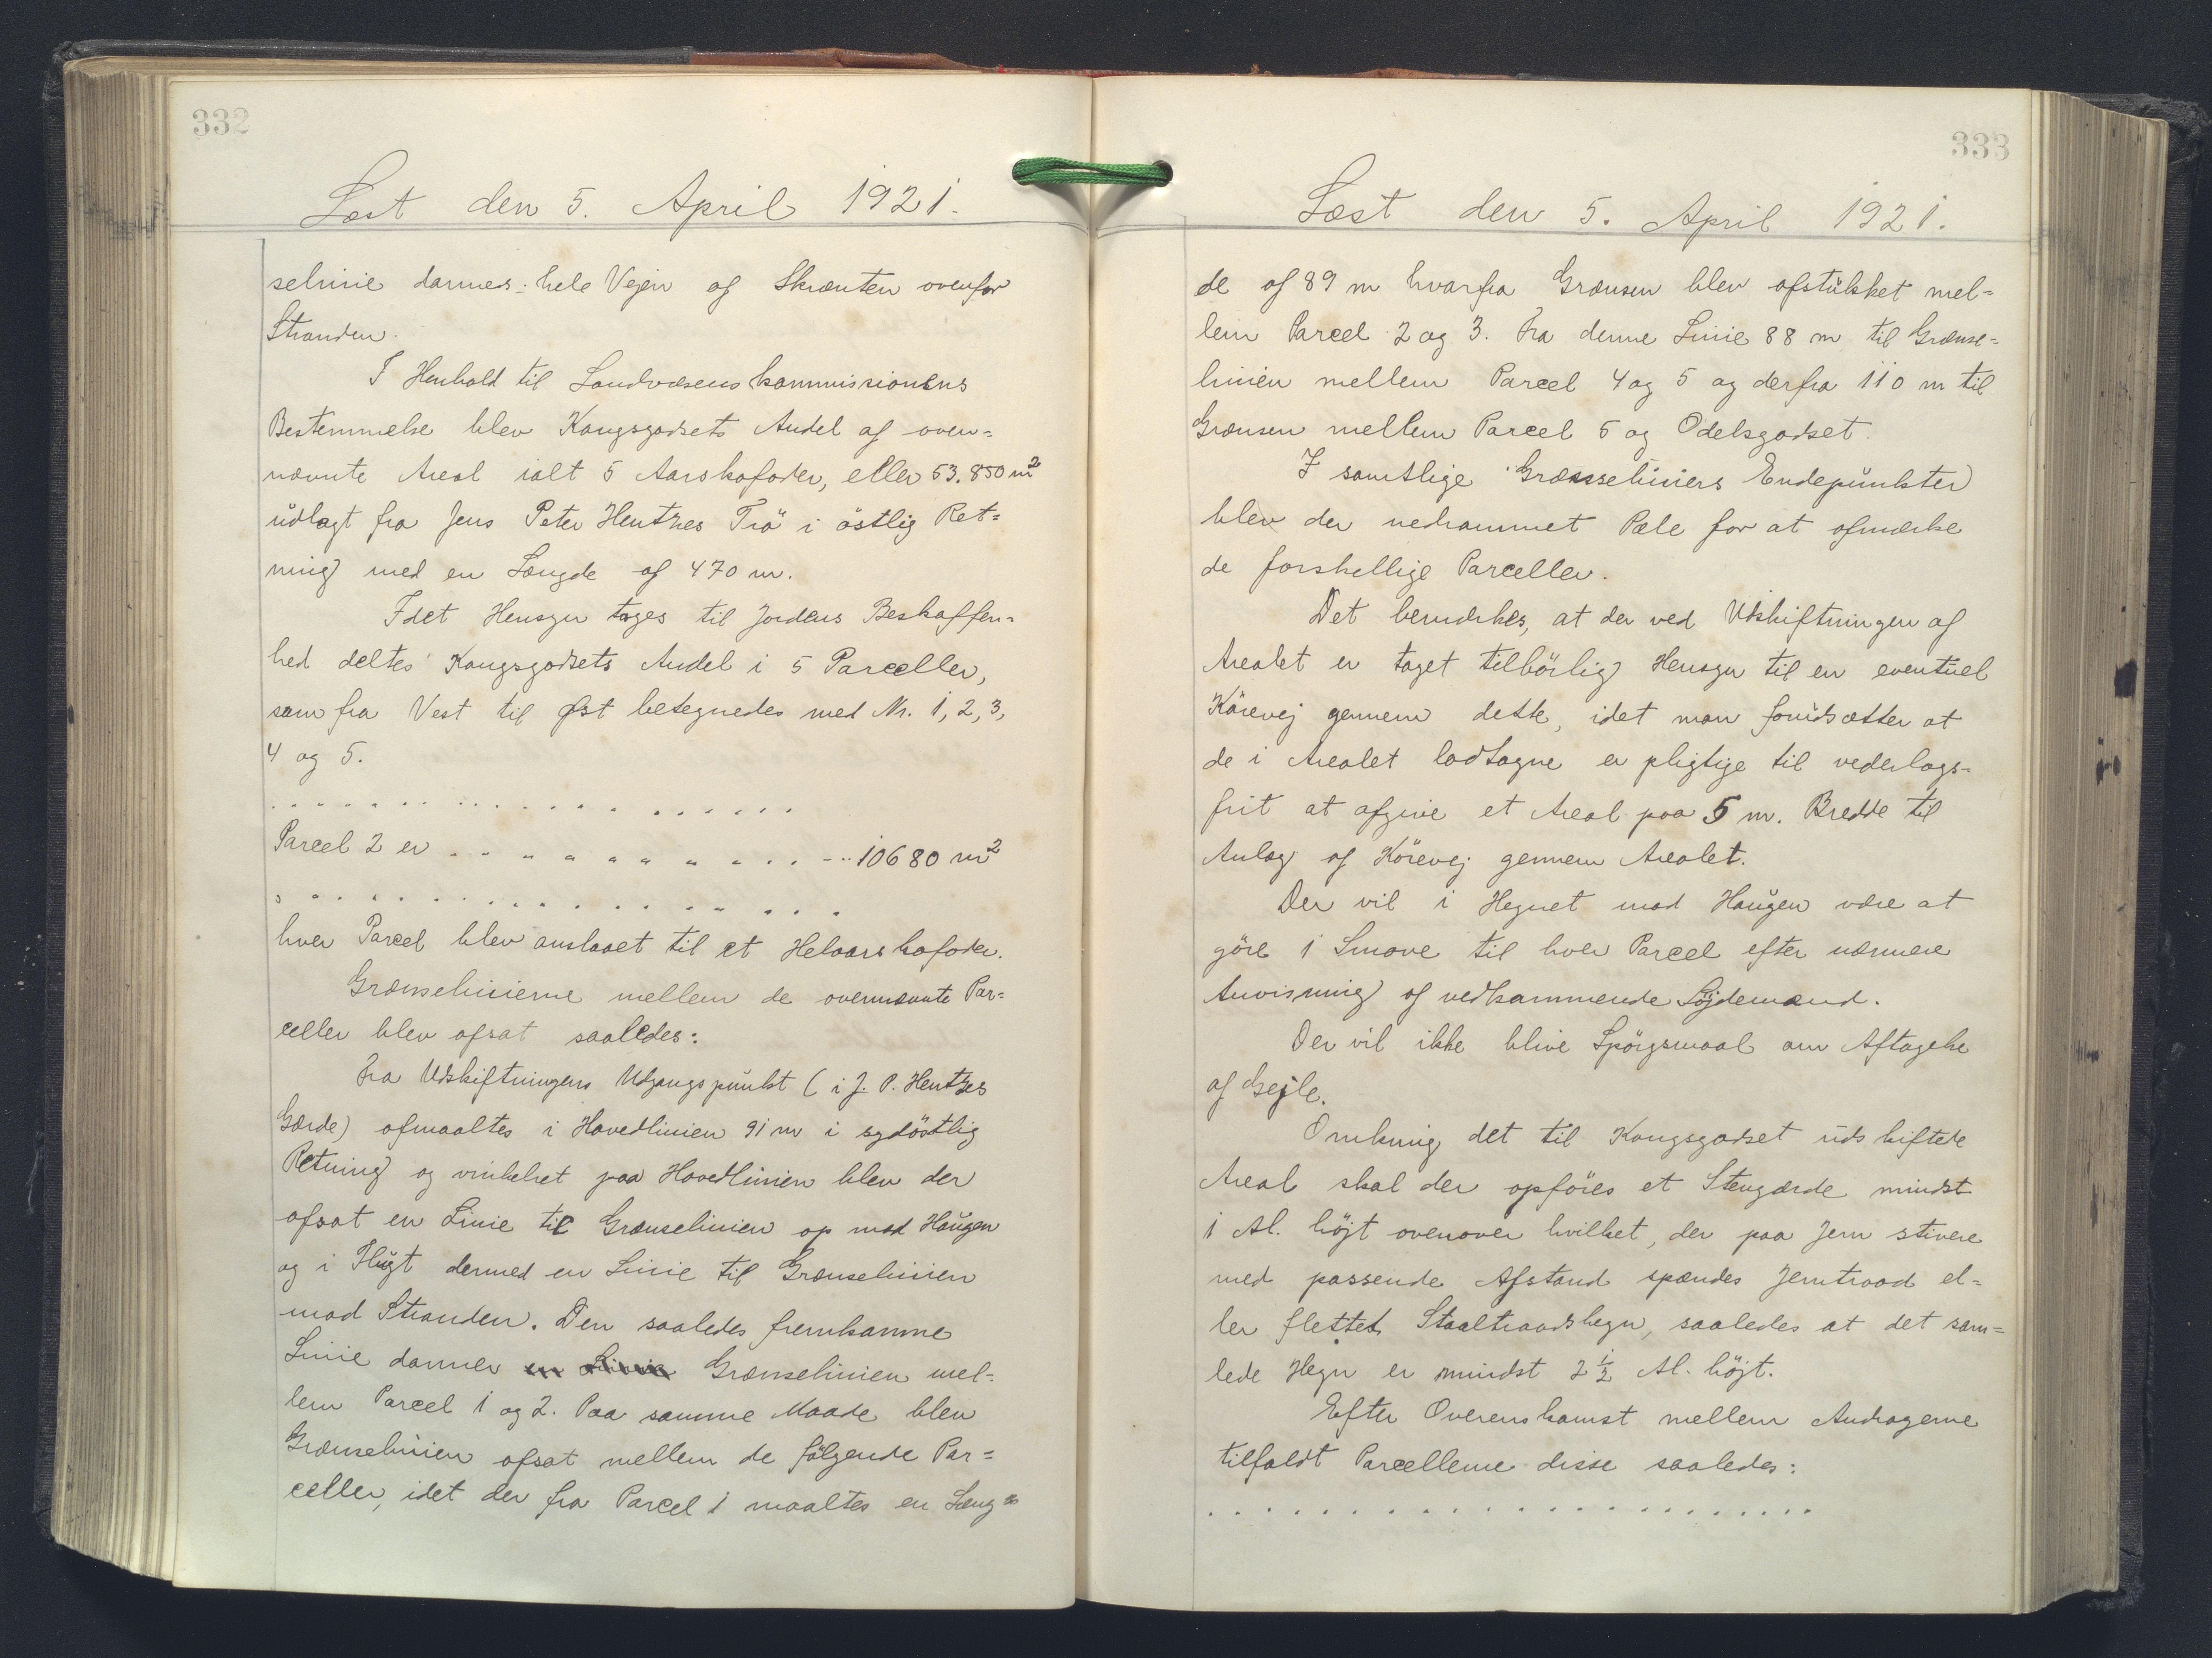 332
Læst den 5. April 1921.
selinie dannes: hele Vejen og Skrænten ovenfor
Stranden.
I Henhold til Landvæsenskommissionens
Bestemmelse blev Kongsgodsets Andel af oven=
nævnte Areal ialt 5 Aarskofoder, eller 53.850 m²
udlagt fra Jens Peter Hentzes Trö i östlig Ret=
ning med en Længde af 470 m.
Idet Hensyn toges til Jordens Beskaffen=
hed deltes Kongsgodsets Andel i 5 Parceller,
som fra Vest til Øst betegnedes med Nr. 1, 2, 3,
4 og 5.
. . . . . . . . . . . . . . . . . . .
Parcel 2 er . . . . . . . . . . . . 10680 m²
. . . . . . . . . . . . . . . . . . .
hver Parcel blev anslaaet til et Helaarskofoder.
Grænselinierne mellem de ovennævnte Par=
celler blev afsat saaledes:
Fra Udskiftningens Udgangspunkt (i J. P. Hentzes
Gærde) afmaaltes i Hovedlinien 91 m i sydöstlig
Retning og vinkelret paa Hovedlinien blev der
afsat en Linie til Grænselinien op mod Haugen
og i Flugt dermed en Linie til Grænselinien
mod Stranden. Den saaledes fremkomne
Linie danner en Linie Grænselinien mel=
lem Parcel 1 og 2. Paa samme Maade blev
Grænselinien afsat mellem de fölgende Par=
celler, idet der fra Parcel 1 maaltes en Læng=
333
Læst den 5. April 1921.
de af 89 m hvorfra Grænsen blev afstukket mel=
lem Parcel 2 og 3. Fra denne Linie 88 m til Grænse=
linien mellem Parcel 4 og 5 og derfra 110 m til
Grænsen mellem Parcel 5 og Odelsgodset.
I samtlige Grænseliniers Endepunkter
blev der nedrammet Pæle for at afmærke
de forskellige Parceller.
Det bemærkes, at der ved Udskiftningen af
Arealet er taget tilbörlig Hensyn til en eventuel
Körevej gennem dette, idet man forudsætter at
de i Arealet lodtagne er pligtige til vederlags=
frit at afgive et Areal paa 5 m. Bredde til
Anlæg af Körevej gennem Arealet.
Der vil i Hegnet mod Haugen være at
göre 1 Smove til hver Parcel efter nærmere
Anvisning af vedkommende Söjdemænd.
Der vil ikke blive Spörgsmaal om Aftagelse
af Sejle.
Omkring det til Kongsgodset udskiftede
Areal skal der opföres et Stengærde mindst
1 Al. höjt ovenover hvilket, der paa Jern stivere
med passende Afstand spændes Jerntraad el=
ler flettet Staaltraadshegn, saaledes at det sam=
lede Hegn er mindst 2½ Al. höjt.
Efter Overenskomst mellem Andragerne
tilfaldt Parcellerne disse saaledes:
. . . . . . . . . . . . . . . . . . . . . .